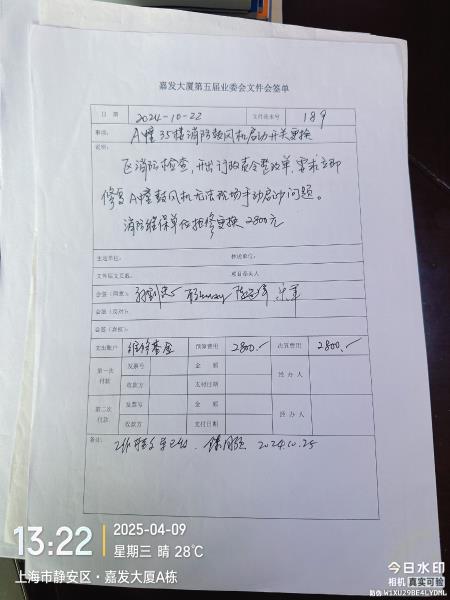 嘉发大厦第五届业委会文件会签单
日 期 2024-10-22 文件流水号 189
事由: A幢35楼消防鼓风机启动开关更换
说明:
区消防检查,开出订改责令整改单,要求立即
修复A幢鼓风机无法现场手动启动问题。
消防维保单位报修更换2800元
主送单位: 抄送单位:
文件原文页数: 项目牵头人
会签(同意):
会签(反对):
会签(弃权):
支出账户 维修基金 预算费用 2800.- 决算费用 2800.-
第一次付款 发票号 金 额 经 办 人
收款方 支付日期
第二次付款 发票号 金 额 经 办 人
收款方 支付日期
备注: 2024.10.25
13:22 2025-04-09
星期三 晴 28℃
上海市静安区·嘉发大厦A栋
今日水印
相机 真实可验
防伪 W1XU29BE4LYDML